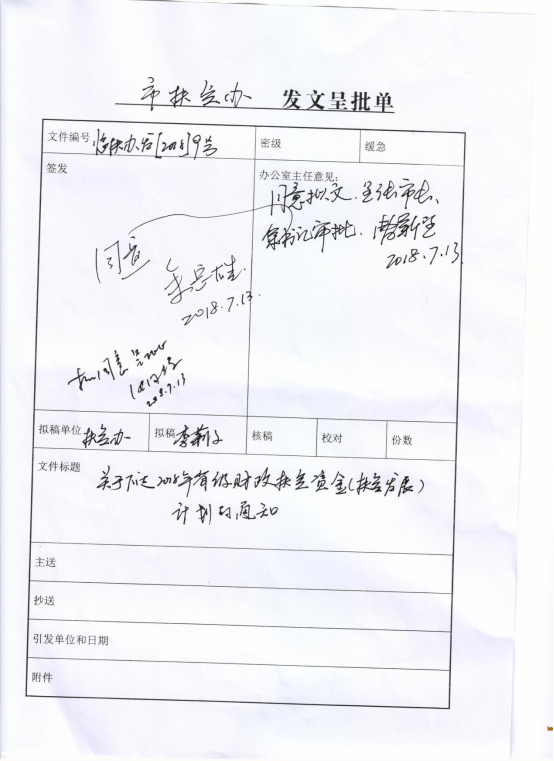 市扶贫办 发文呈批单
文件编号 扶办发[2018]9号
密级
缓急
签发
办公室主任意见:
同意拟文.呈张市长、
审批.
2018.7.13
同意
2018.7.13.
同意
2018.7.13
拟稿单位 扶贫办
拟稿 李莉
核稿
校对
份数
文件标题
关于下达2018年省级财政扶贫资金(扶贫发展)
计划的通知
主送
抄送
引发单位和日期
附件